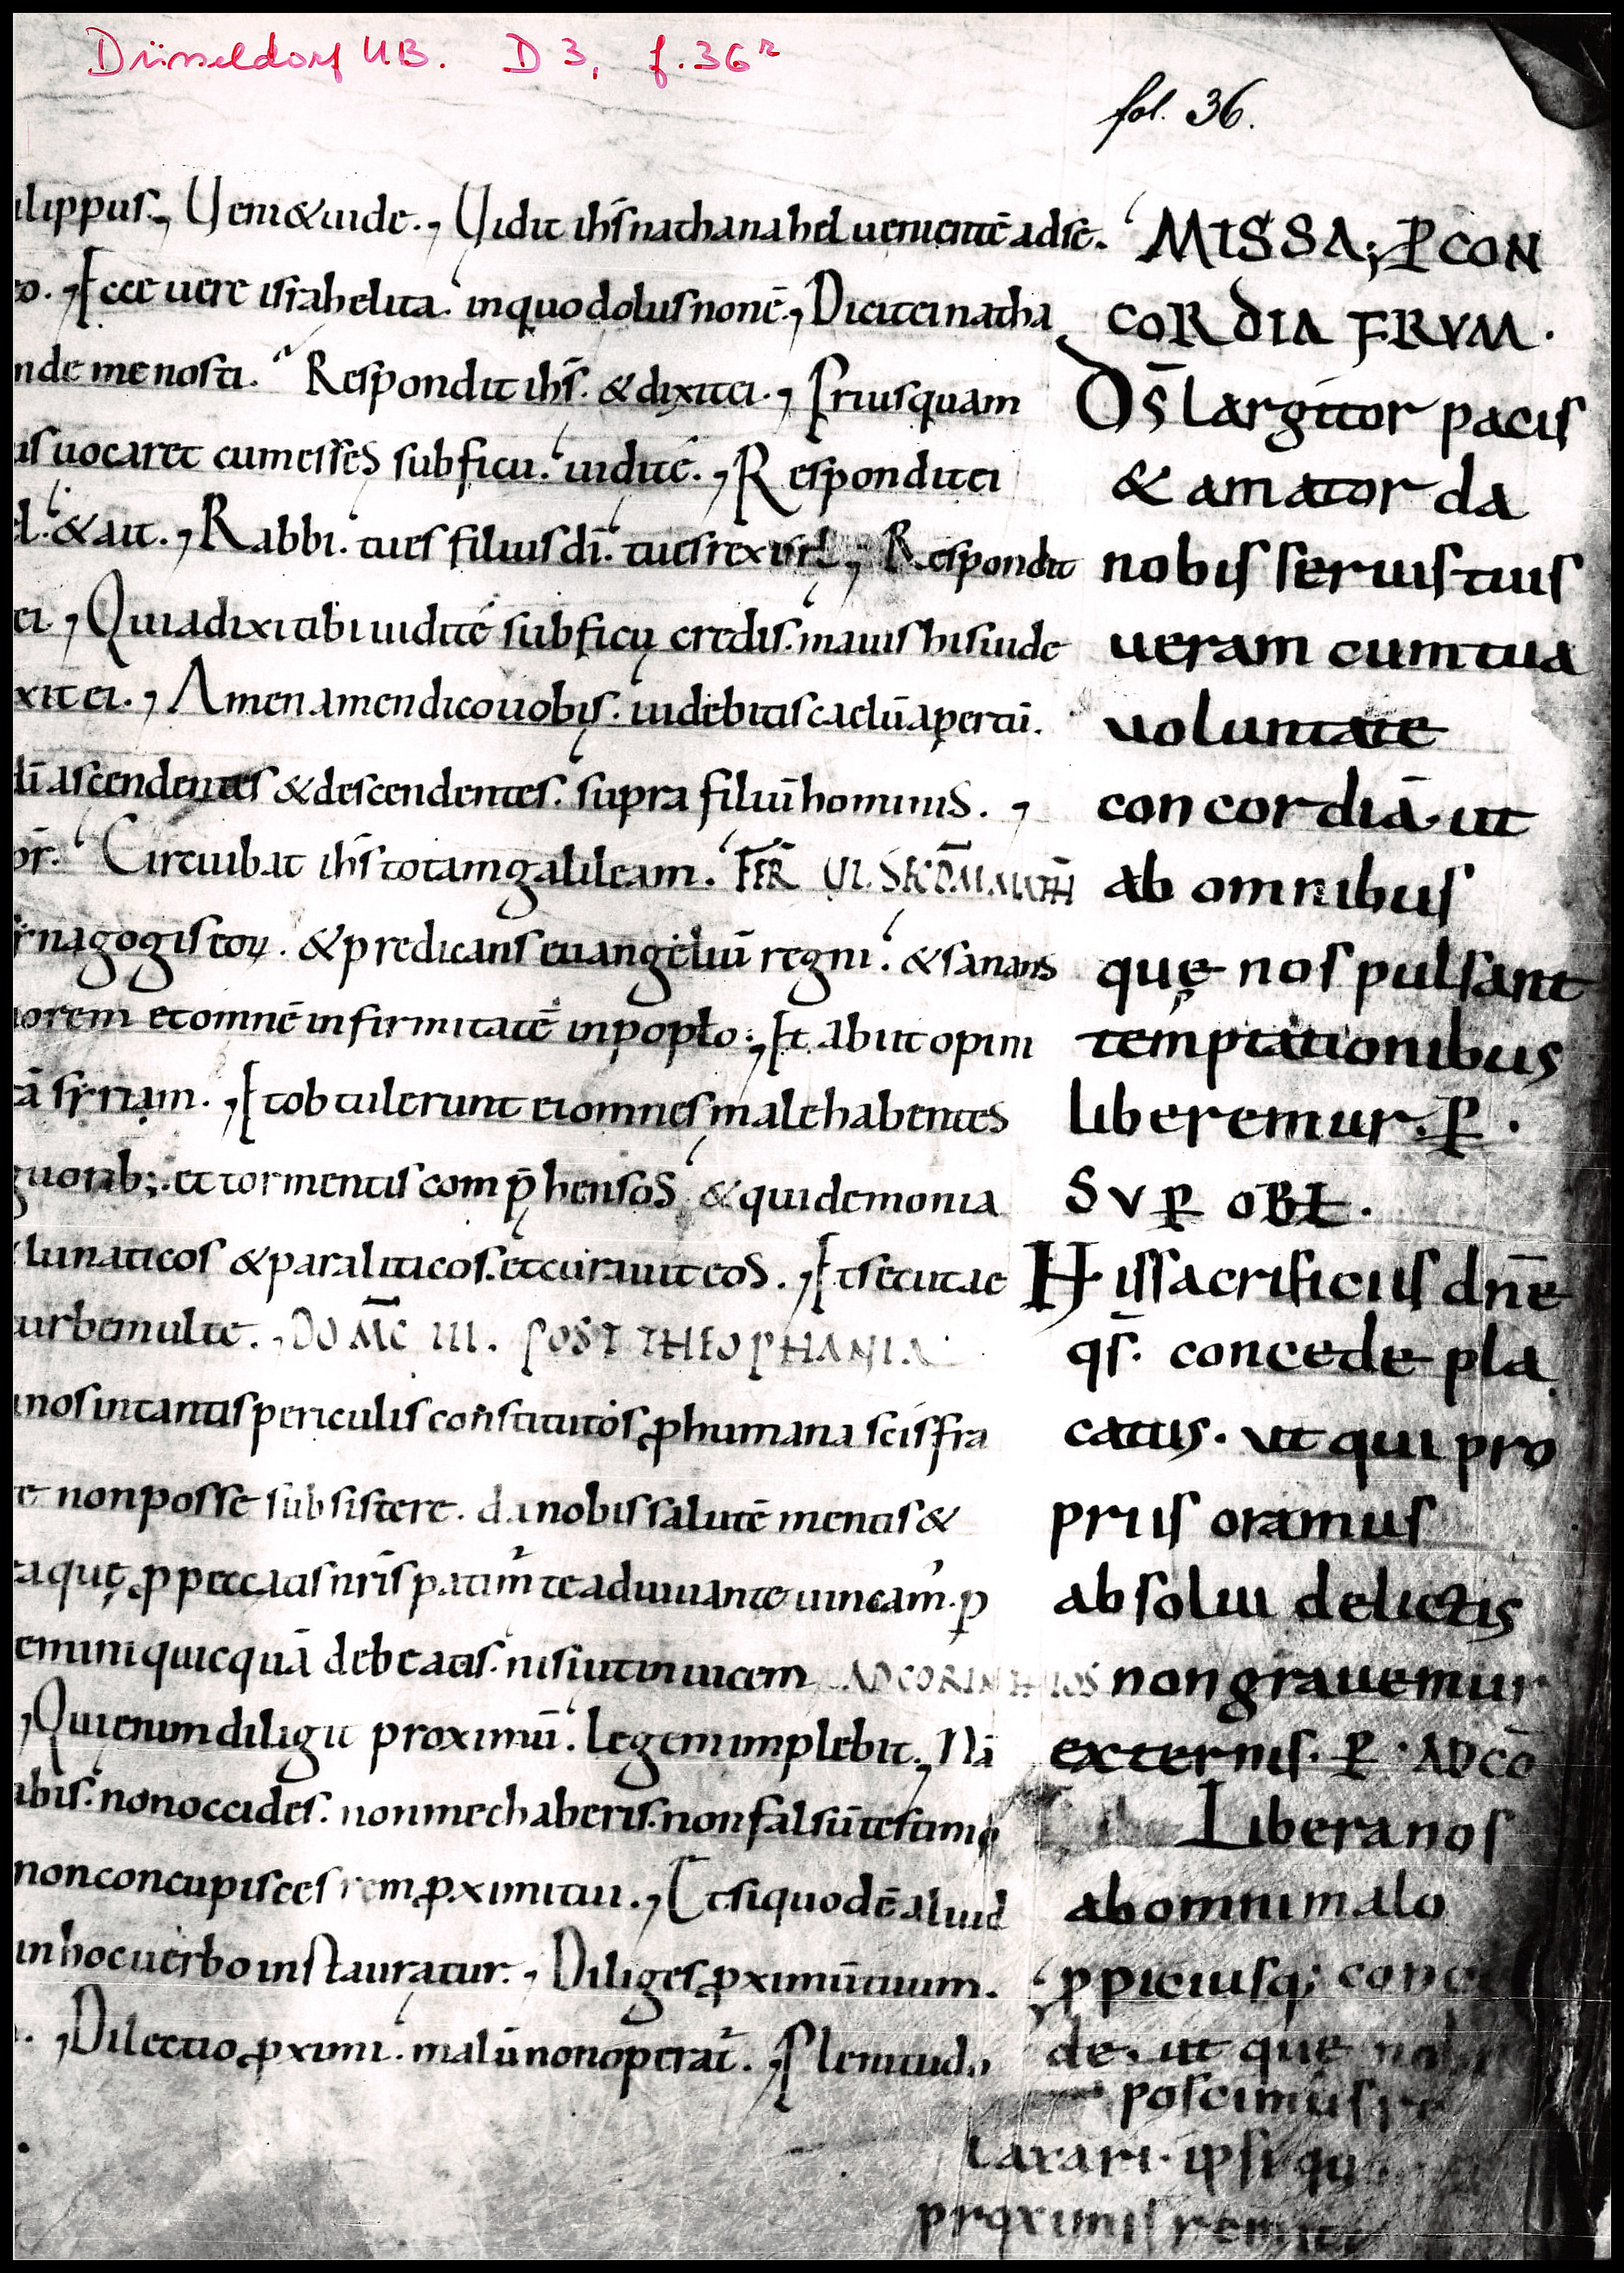 Düsseldorf UB. D 3, f. 36r
fol. 36.
ilippus., Ueni & uide., Uidit ihs̄ nathanahel uenientē ad se.
o., Ecce uere israhelita. in quo dolus non ē., Dicit ei natha
nde me nosti. Respondit ihs̄. & dixit ei., Priusquam
us uocaret cum esses sub ficu. uidi te., Respondit ei
el. & ait., Rabbi. tu es filius dī. tu es rex isrl., Respondit
ei., Quia dixi tibi uidi te sub ficu credis. maius his uide
xit ei., Amen amen dico uobis. uidebitis caelū apertū.
dī ascendentes & descendentes. supra filiū hominis.,
or̄. Circuibat ihs̄ totam galileam. FER̄ VI. SECD̄ MATH
ynagogis eoꝝ. & predicans euangeliū regni. & sanans
uorem et omnē infirmitatē in poplo., Et abiit opini
tā syriam., Et obtulerunt ei omnes male habentes
guorib; et tormentis comp̄hensos. & qui demonia
lunaticos & paraliticos. et curauit eos., Et secutae
urbe multe., DOM̄C III. POST THEOPHANIA
nos in tantis periculis constitutos ꝓ humana scis fra
e non posse subsistere. da nobis salutē mentis &
ta quę ꝓ peccatis nr̄is patimur te adiuuante uincam̄. ꝑ
emini quicquā debeatis. nisi ut inuicem AD CORINTHIOS
, Qui enim diligit proximū. legem implebit., Nā
abis. non occides. non mechaberis. non falsū testimo
non concupisces rem ꝓximi tui., Et si quod ē aliud
in hoc uerbo instauratur., Diliges ꝓximū tuum.
., Dilectio ꝓximi. malū non operat̄., Plenitudo
MISSA; ꝐCON
CORDIA FRVM.
Ds̄ largitor pacis
& amator da
nobis seruis tuis
ueram cum tua
uoluntate
concordiā. ut
ab omnibus
quę nos pulsant
temptationibus
liberemur. ꝑ.
SVꝐ OBL.
His sacrificiis dn̄e
qs̄. concede pla
catus. ut qui pro
priis oramus
absolui delictis
non grauemur
externis. ꝑ. AD CŌ
Libera nos
ab omni malo
ꝓpiciusq; conce
de. ut que
poscimus re
laxari. ipsi
proximis